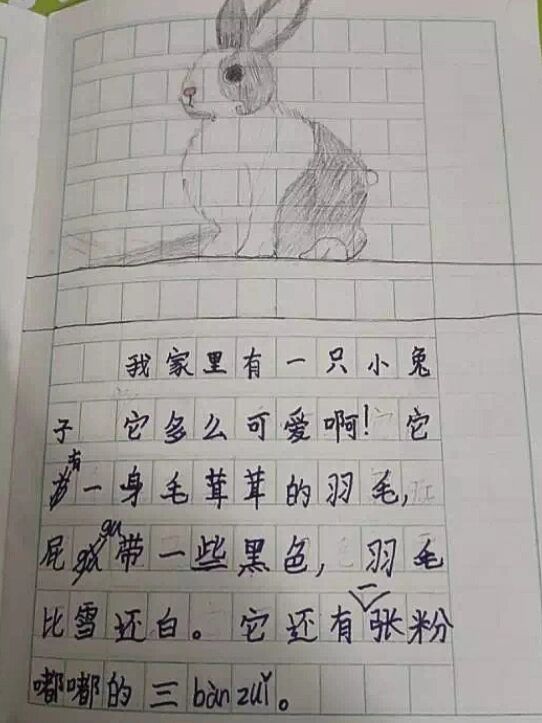 我家里有一只小兔
子 它多么可爱啊！它
有一身毛茸茸的羽毛，
屁gu带一些黑色，羽毛
比雪还白。它还有一张粉
嘟嘟的三bàn zuǐ。